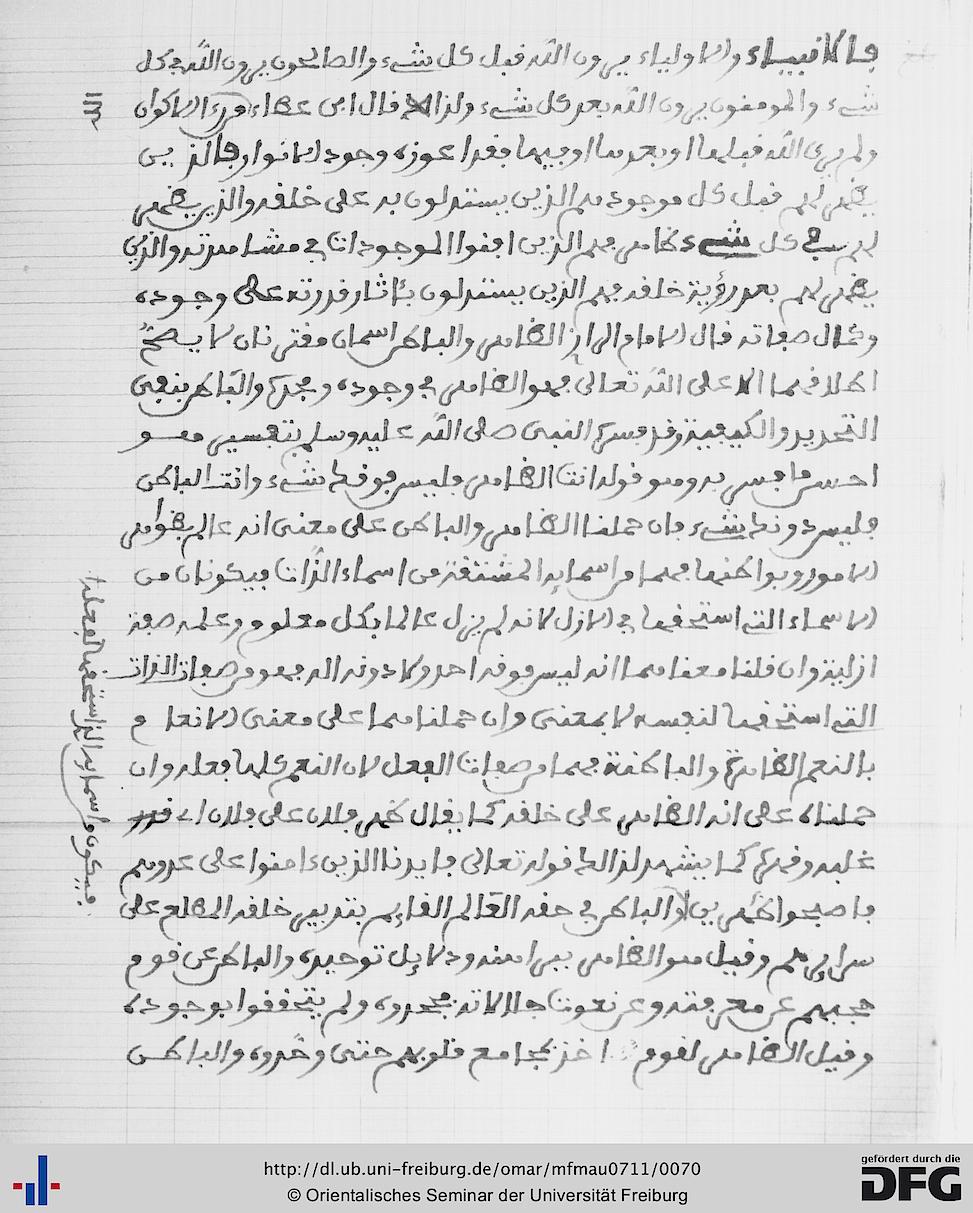 فالانبياء والاولياء يرون الله قبل كل شيء والصالحون يرون الله في كل
شيء والموقنون يرون الله بعد كل شيء ولذالك قال ابن عطاء فمن راى الاكوان
ولم ير الله قبلها او بعدها او فيها فقد اعوزه وجود الانوار فالذين
يظهر لهم قبل كل موجود هم الذين يستدلون به على خلقه والذين يظهر
لهم في كل شيء ظاهر هم الذين افنوا الموجودات في مشاهدته والذين
يظهر لهم بعد رؤية خلقه هم الذين يستدلون بآثار قدرته على وجوده
وكمال صفاته قال الامام الرازي الظاهر والباطن اسمان مقترنان لا يصح
اطلاقهما الا على الله تعالى فهو الظاهر في وجوده ومجده والباطن بنفي
التحديد والكيفية وقد فسره النبي صلى الله عليه وسلم بتفسير هو
احسن ما فسر به وهو قوله انت الظاهر فليس فوقك شيء وانت الباطن
فليس دونك شيء فان حملنا الظاهر والباطن على معنى انه عالم بظواهر
الامور وبواطنها فهما من اسمايه المشتقة من اسماء الذات فيكونان من
الاسماء التي استحقها في الازل لانه لم يزل عالما بكل معلوم وعلمه صفة
ازلية وان قلنا معناهما انه ليس فوقه احد ولا دونه اله فهو من صفات الذات
التي استحقها لنفسه لا بمعنى وان حملناهما على معنى الانعام
بالنعم الظاهرة والباطنة فهما من صفات الفعل لان النعم كلها فعله وان
حملناه على انه الظاهر على خلقه كما يقال ظهر فلان على فلان اي
غلبه وقهره كما يشهد لذالك قوله تعالى فايدنا الذين ءامنوا على عدوهم
فاصبحوا ظهرين والباطن في حقه العالم القايم بتدبير خلقه المطلع على
سرايرهم وقيل هو الظاهر ببراهنه ودلايل توحيده والباطن عن قوم
حجبهم عن معرفته وعن نعوت جلالاته فجحدوه ولم يتحققوا بوجوده
وقيل الظاهر لقوم اخذ بمجامع قلوبهم حتى وحدوه والباطن
فيكون من اسمايه التي استحقها لفعله
http://dl.ub.uni-freiburg.de/omar/mfmau0711/0070
© Orientalisches Seminar der Universität Freiburg
gefördert durch die
DFG